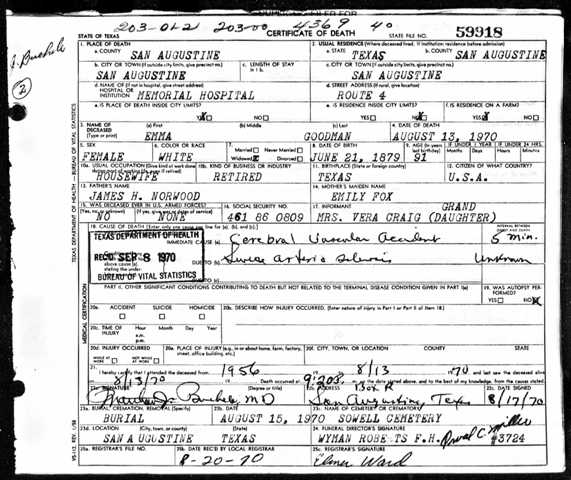 203-012 203-00 4369 40
STATE OF TEXAS CERTIFICATE OF DEATH STATE FILE NO. 59918
1. PLACE OF DEATH 2. USUAL RESIDENCE (Where deceased lived. If institution: residence before admission)
a. COUNTY SAN AUGUSTINE a. STATE TEXAS b. COUNTY SAN AUGUSTINE
b. CITY OR TOWN (If outside city limits, give precinct no.) c. LENGTH OF STAY in 1 b. c. CITY OR TOWN (If outside city limits, give precinct no.)
SAN AUGUSTINE SAN AUGUSTINE
d. NAME OF (If not in hospital, give street address) HOSPITAL OR INSTITUTION MEMORIAL HOSPITAL d. STREET ADDRESS (If rural, give location) ROUTE 4
e. IS PLACE OF DEATH INSIDE CITY LIMITS? YES NO e. IS RESIDENCE INSIDE CITY LIMITS? YES NO f. IS RESIDENCE ON A FARM? YES NO
3. NAME OF DECEASED (Type or print) (a) First (b) Middle (c) Last 4. DATE OF DEATH
EMMA GOODMAN AUGUST 13, 1970
5. SEX 6. COLOR OR RACE 7. Married Never Married 8. DATE OF BIRTH 9. AGE (In years last birthday) IF UNDER 1 YEAR IF UNDER 24 HRS.
FEMALE WHITE Widowed Divorced JUNE 21, 1879 91 Months Days Hours Minutes
10a. USUAL OCCUPATION 10b. KIND OF BUSINESS OR INDUSTRY 11. BIRTHPLACE (State or foreign country) 12. CITIZEN OF WHAT COUNTRY?
HOUSEWIFE RETIRED TEXAS U.S.A.
13. FATHER'S NAME 14. MOTHER'S MAIDEN NAME
JAMES H. NORWOOD EMILY FOX
15. WAS DECEASED EVER IN U.S. ARMED FORCES? 16. SOCIAL SECURITY NO. 17. INFORMANT GRAND
NO NONE 461 86 0809 MRS. VERA CRAIG (DAUGHTER)
18. CAUSE OF DEATH
TEXAS DEPARTMENT OF HEALTH
REC'D SEP 8 1970
BUREAU OF VITAL STATISTICS
IMMEDIATE CAUSE (a) Cerebral Vascular Accident 5 min.
Arterio Sclerosis Unknown
PART II. OTHER SIGNIFICANT CONDITIONS CONTRIBUTING TO DEATH BUT NOT RELATED TO THE TERMINAL DISEASE CONDITION GIVEN IN PART I(a) 19. WAS AUTOPSY PERFORMED? YES NO
20a. ACCIDENT SUICIDE HOMICIDE 20b. DESCRIBE HOW INJURY OCCURRED. (Enter nature of injury in Part I or Part II of item 18)
20c. TIME OF INJURY Hour Month Day Year a.m. p.m.
20d. INJURY OCCURRED WHILE AT WORK NOT WHILE AT WORK 20e. PLACE OF INJURY (e.g., in or about home, farm, factory, street, office building, etc.) 20f. CITY, TOWN, OR LOCATION COUNTY STATE
21. I hereby certify that I attended the deceased from 1956 19 to 8/13 1970 and last saw the deceased alive
on 8/13/70 Death occurred at 9:20 m. on the date stated above, and to the best of my knowledge, from the causes stated.
22a. SIGNATURE (Degree or title) 22b. ADDRESS Box R 22c. DATE SIGNED
M D San Augustine, Texas 8/17/70
23a. BURIAL, CREMATION, REMOVAL (Specify) 23b. DATE 23c. NAME OF CEMETERY OR CREMATORY
BURIAL AUGUST 15, 1970 SOWELL CEMETERY
23d. LOCATION (City, town, or county) (State) 24. FUNERAL DIRECTOR'S SIGNATURE
SAN AUGUSTINE TEXAS WYMAN ROBE TS F.H. C. Miller #3724
25a. REGISTRAR'S FILE NO. 25b. DATE REC'D BY LOCAL REGISTRAR 25c. REGISTRAR'S SIGNATURE
8-20-70 Elmer Ward
TEXAS DEPARTMENT OF HEALTH - BUREAU OF VITAL STATISTICS
MEDICAL CERTIFICATION
2